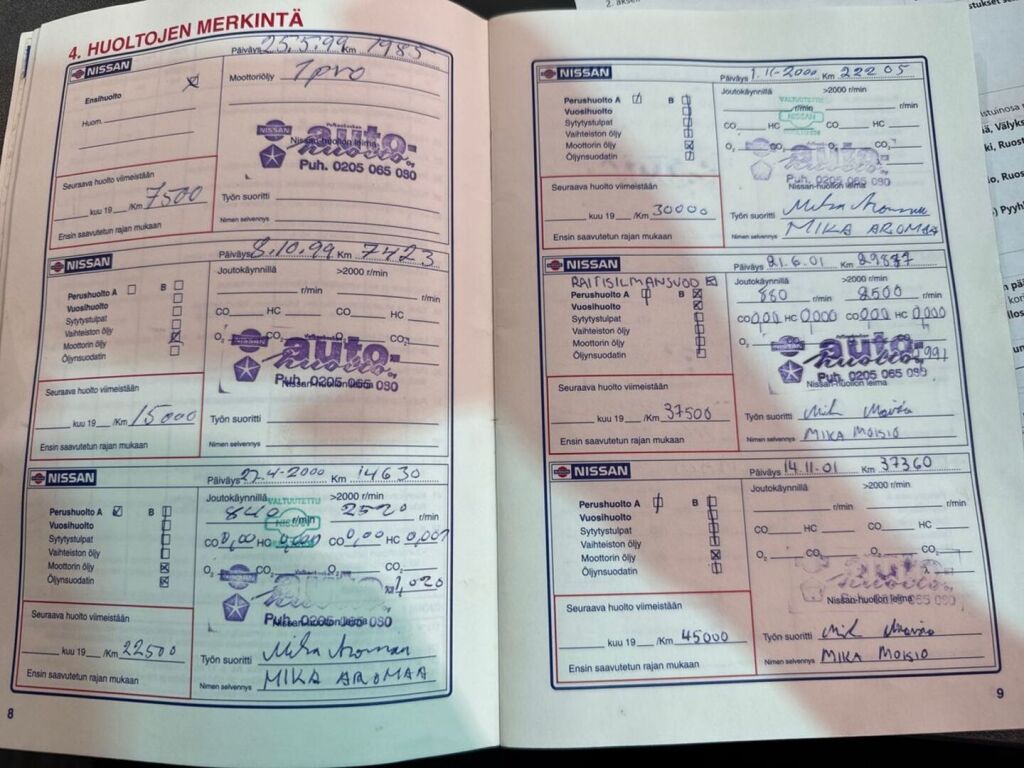 4. HUOLTOJEN MERKINTÄ
Päiväys 25.5.99 Km 1985
NISSAN
Ensihuolto
Moottoriöljy 1 pro
Huom.
NISSAN
auto-
huolto
Nissan-huollon leima
Puh. 0205 065 080
Seuraava huolto viimeistään
____ kuu 19 __ /Km 7500
Työn suoritti
Ensin saavutetun rajan mukaan
Nimen selvennys
Päiväys 8.10.99 Km 7423
NISSAN
Joutokäynnillä >2000 r/min
Perushuolto A B
r/min r/min
Vuosihuolto
Sytytystulpat
CO HC CO HC
Vaihteiston öljy
Moottorin öljy
O2 CO2 O2 CO2
Öljynsuodatin
auto-
huolto
Puh. 0205 065 080
Nissan-huollon leima
Seuraava huolto viimeistään
____ kuu 19 __ /Km 15000
Työn suoritti
Ensin saavutetun rajan mukaan
Nimen selvennys
Päiväys 27.4-2000 Km 14630
NISSAN
Joutokäynnillä >2000 r/min
VALTUUTETTU
NISSAN
Perushuolto A B
840 r/min 2520 r/min
Vuosihuolto
Sytytystulpat
CO 0,00 HC 0,000 CO 0,00 HC 0,001
Vaihteiston öljy
Moottorin öljy
O2 CO2 O2 CO2
Öljynsuodatin
1,020
Puh. 0205 065 080
Nissan-huollon leima
Seuraava huolto viimeistään
____ kuu 19 __ /Km 22500
Työn suoritti Mika Aromaa
Ensin saavutetun rajan mukaan
Nimen selvennys MIKA AROMAA
8
Päiväys 1.11-2000 Km 22205
NISSAN
Joutokäynnillä >2000 r/min
VALTUUTETTU
NISSAN
Perushuolto A B
r/min r/min
Vuosihuolto
Sytytystulpat
CO HC CO HC
Vaihteiston öljy
Moottorin öljy
O2 CO2 O2 CO2
Öljynsuodatin
Puh. 0205 065 080
Nissan-huollon leima
Seuraava huolto viimeistään
____ kuu 19 __ /Km 30000
Työn suoritti Mika Aromaa
Ensin saavutetun rajan mukaan
Nimen selvennys MIKA AROMAA
Päiväys 21.6.01 Km 29877
NISSAN
Joutokäynnillä >2000 r/min
RAITISILMANSUOD
Perushuolto A B
880 r/min 2500 r/min
Vuosihuolto
Sytytystulpat
CO 0,00 HC 0,000 CO 0,00 HC 0,000
Vaihteiston öljy
Moottorin öljy
O2 CO2 O2 CO2
Öljynsuodatin
auto-
huolto
Puh. 0205 065 080
Nissan-huollon leima
Seuraava huolto viimeistään
____ kuu 19 __ /Km 37500
Työn suoritti
Ensin saavutetun rajan mukaan
Nimen selvennys MIKA MOISIO
Päiväys 14.11.01 Km 37360
NISSAN
Joutokäynnillä >2000 r/min
Perushuolto A B
r/min r/min
Vuosihuolto
Sytytystulpat
CO HC CO HC
Vaihteiston öljy
Moottorin öljy
O2 CO2 O2 CO2
Öljynsuodatin
auto
huolto
Nissan-huollon leima
Seuraava huolto viimeistään
____ kuu 19 __ /Km 45000
Työn suoritti
Ensin saavutetun rajan mukaan
Nimen selvennys MIKA MOISIO
9